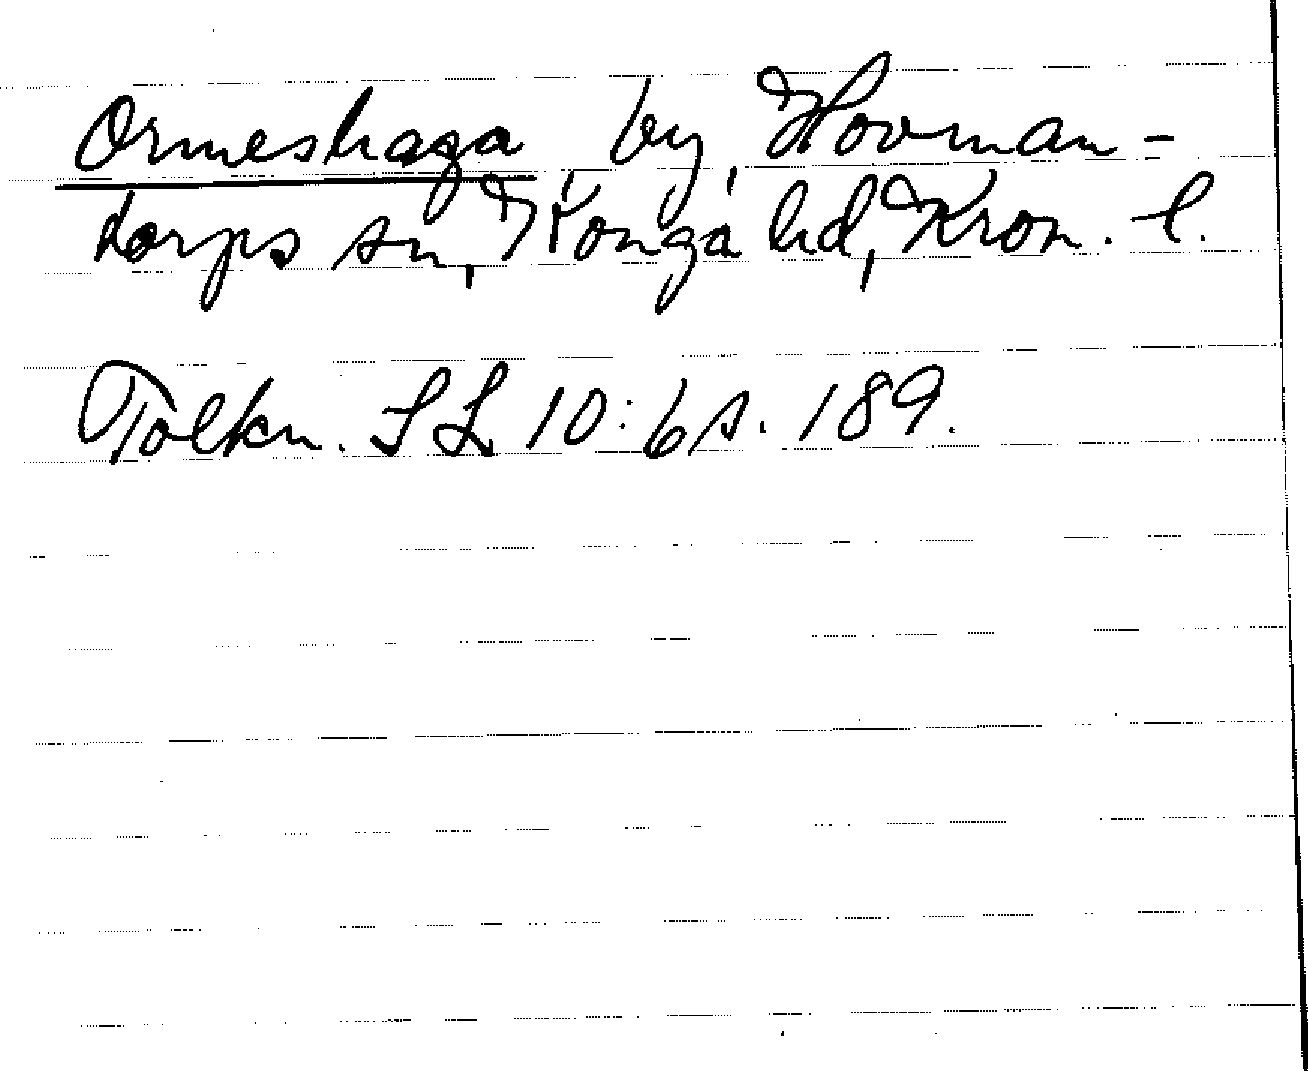 Ormeshaga by, Hovman-
torps sn, Konga hd, Kron. l.
Tolkn. SL 10:6 s. 189.